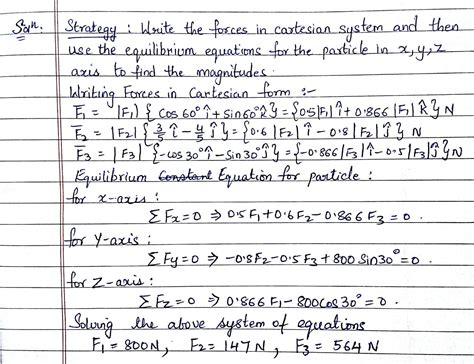 Solⁿ: Strategy : Write the forces in cartesian system and then
use the equilibrium equations for the particle in x, y, z
axis to find the magnitudes.
Writing Forces in Cartesian form :-
F̅₁ = |F₁| { cos 60° î + sin 60° k̂ } = {0.5|F₁| î + 0.866 |F₁| k̂ } N
F̅₂ = |F₂| { 3/5 î - 4/5 ĵ } = {0.6 |F₂| î - 0.8 |F₂| ĵ } N
F̅₃ = |F₃| { -cos 30° î - sin 30° ĵ } = {-0.866 |F₃| î - 0.5 |F₃| ĵ } N
Equilibrium Constant Equation for particle :
for x-axis :
ΣFx = 0 ⇒ 0.5 F₁ + 0.6 F₂ - 0.866 F₃ = 0 .
for Y-axis :
ΣFy = 0 ⇒ -0.8 F₂ - 0.5 F₃ + 800 Sin 30° = 0 .
for Z-axis :
ΣFz = 0 ⇒ 0.866 F₁ - 800 cos 30° = 0 .
Solving the above system of equations
F₁ = 800N , F₂ = 147 N , F₃ = 564 N